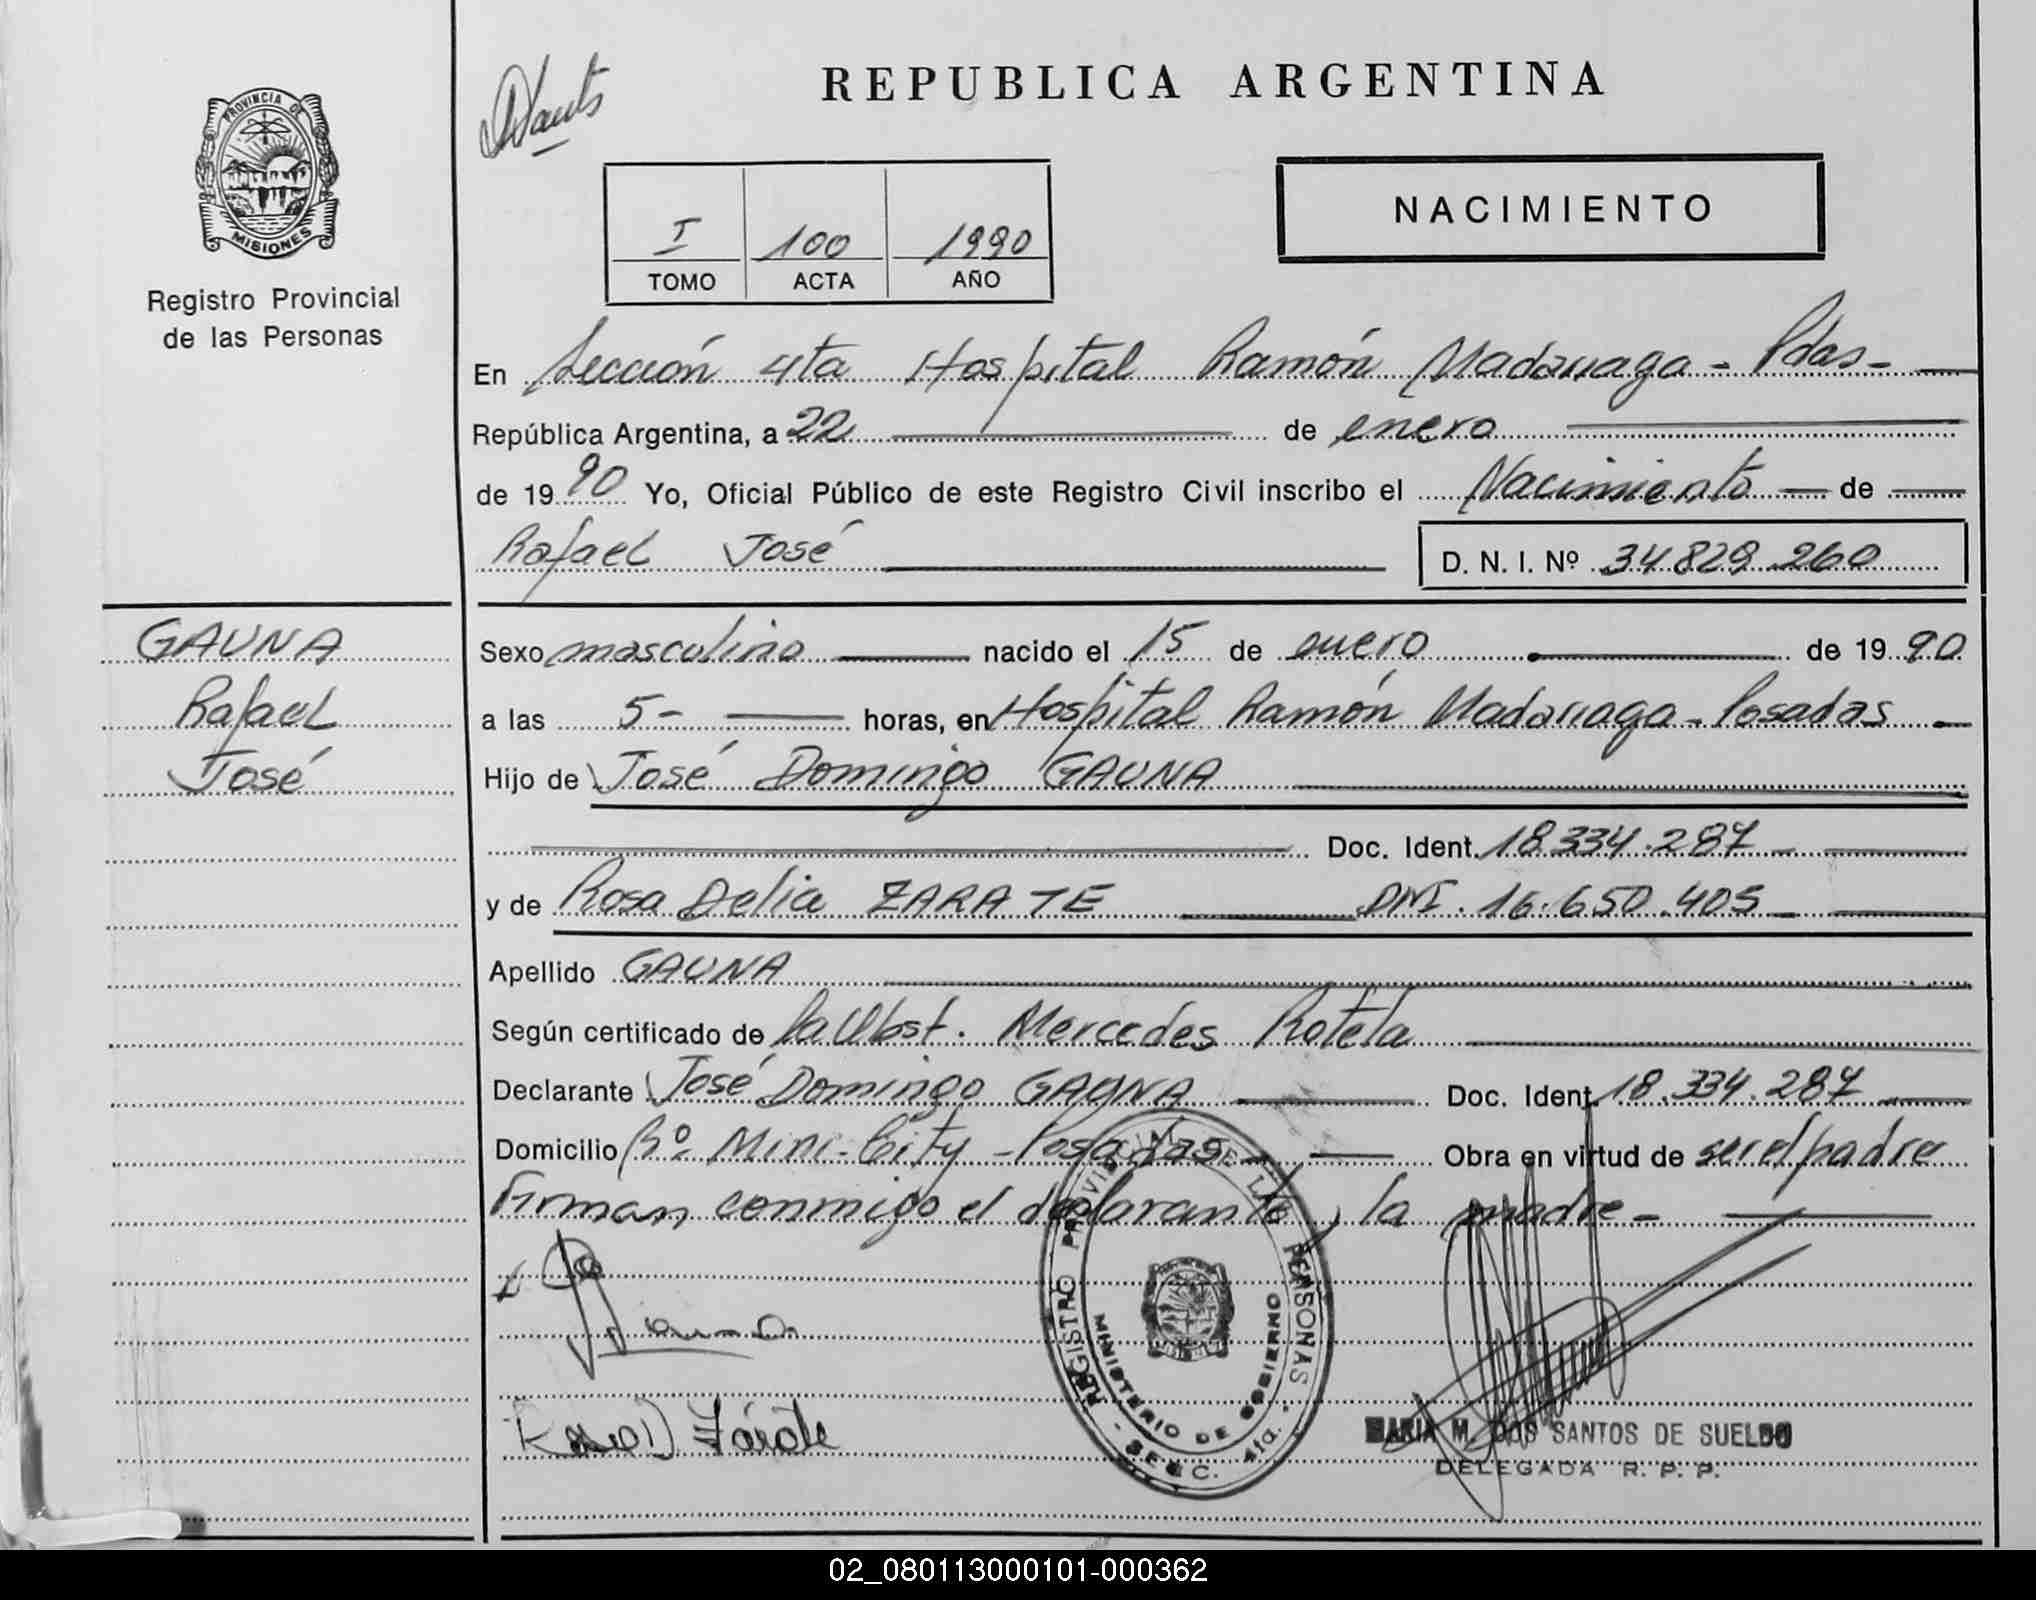 REPUBLICA ARGENTINA
PROVINCIA DE
MISIONES
Registro Provincial
de las Personas
I 100 1990
TOMO ACTA AÑO
NACIMIENTO
En Sección 4ta Hospital Ramón Madariaga - Pdas -
República Argentina, a 22 de enero
de 1990 Yo, Oficial Público de este Registro Civil inscribo el Nacimiento de
Rafael José
D. N. I. Nº 34.829.260
GAUNA
Rafael
José
Sexo masculino nacido el 15 de enero de 1990
a las 5- horas, en Hospital Ramón Madariaga - Posadas
Hijo de José Domingo GAUNA
Doc. Ident. 18.334.287
y de Rosa Delia ZARATE DNI. 16.650.405
Apellido GAUNA
Según certificado de la Obst. Mercedes Rotela
Declarante José Domingo GAUNA Doc. Ident. 18.334.287
Domicilio Bº Mini-City - Posadas - Obra en virtud de ser el padre
Firman conmigo el declarante y la madre -
Rosa D Zárate
REGISTRO PROVINCIAL DE LAS PERSONAS
MINISTERIO DE GOBIERNO
- SECC. 4ta. -
MARIA M. DOS SANTOS DE SUELDO
DELEGADA R. P. P.
02_080113000101-000362